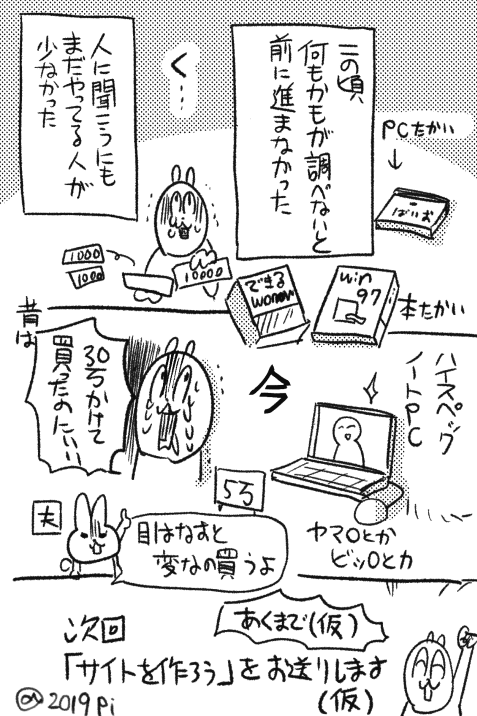 この頃
何もかもが調べないと
前に進まなかった
PCたかい
↓
ばいお
く…
人に聞こうにも
まだやってる人が
少なかった
1000
1000
10000
できる
woner
win
97
本たかい
昔は
30万かけて
買ったのにい!!
今
ハイスペック
ノートPC
5万
ヤマ○とか
ビッ○とカ
夫
目はなすと
変なの買うよ
次回
あくまで(仮)
「サイトを作ろう」をお送りします
(仮)
2019 Pi